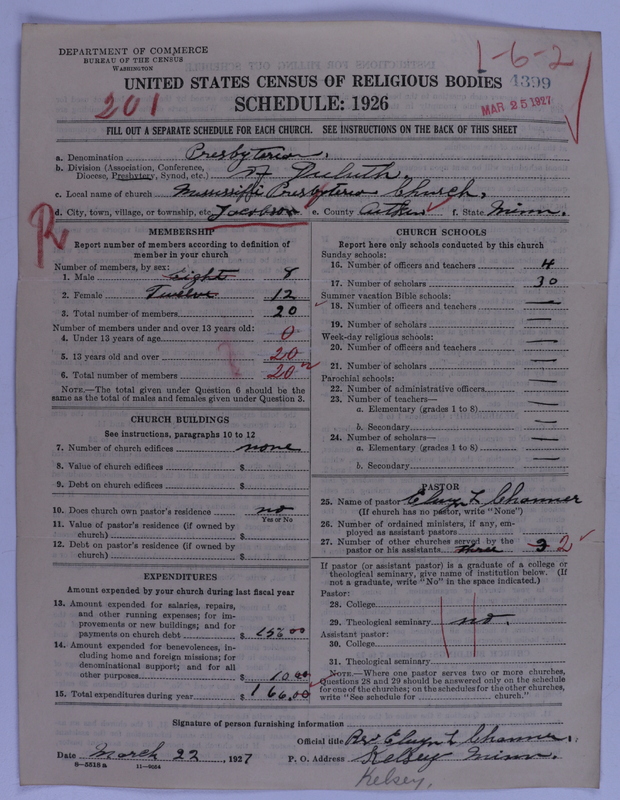 DEPARTMENT OF COMMERCE
BUREAU OF THE CENSUS
WASHINGTON
1-6-2
UNITED STATES CENSUS OF RELIGIOUS BODIES
4399
201
SCHEDULE: 1926
MAR 25 1927
FILL OUT A SEPARATE SCHEDULE FOR EACH CHURCH. SEE INSTRUCTIONS ON THE BACK OF THIS SHEET
a. Denomination Presbyterian.
b. Division (Association, Conference, Diocese, Presbytery, Synod, etc.) of Duluth.
c. Local name of church Mississippi Presbyterian Church.
d. City, town, village, or township, etc. Jacobson e. County Aitkin f. State Minn.
MEMBERSHIP
Report number of members according to definition of
member in your church
Number of members, by sex:
1. Male Eight 8
2. Female Twelve 12
3. Total number of members 20
Number of members under and over 13 years old:
4. Under 13 years of age 0
5. 13 years old and over 20
6. Total number of members 20
NOTE.—The total given under Question 6 should be the
same as the total of males and females given under Question 3.
CHURCH BUILDINGS
See instructions, paragraphs 10 to 12
7. Number of church edifices none
8. Value of church edifices $
9. Debt on church edifices $
10. Does church own pastor's residence no
Yes or No
11. Value of pastor's residence (if owned by
church) $
12. Debt on pastor's residence (if owned by
church) $
EXPENDITURES
Amount expended by your church during last fiscal year
13. Amount expended for salaries, repairs,
and other running expenses; for im-
provements or new buildings; and for
payments on church debt $ 156 00
14. Amount expended for benevolences, in-
cluding home and foreign missions; for
denominational support; and for all
other purposes $ 10.00
15. Total expenditures during year $ 166.00
CHURCH SCHOOLS
Report here only schools conducted by this church
Sunday schools:
16. Number of officers and teachers 4
17. Number of scholars 30
Summer vacation Bible schools:
18. Number of officers and teachers —
19. Number of scholars —
Week-day religious schools:
20. Number of officers and teachers —
21. Number of scholars —
Parochial schools:
22. Number of administrative officers —
23. Number of teachers—
a. Elementary (grades 1 to 8) —
b. Secondary —
24. Number of scholars—
a. Elementary (grades 1 to 8) —
b. Secondary —
PASTOR
25. Name of pastor Elwyn L Channer
(If church has no pastor, write "None")
26. Number of ordained ministers, if any, em-
ployed as assistant pastors
27. Number of other churches served by the
pastor or his assistants three 3 2
If pastor (or assistant pastor) is a graduate of a college or
theological seminary, give name of institution below. (If
not a graduate, write "No" in the space indicated.)
Pastor:
28. College
29. Theological seminary no.
Assistant pastor:
30. College
31. Theological seminary
NOTE.—Where one pastor serves two or more churches,
Questions 28 and 29 should be answered only on the schedule
for one of the churches; on the schedules for the other churches,
write "See schedule for church."
Signature of person furnishing information
Official title Rev. Elwyn L Channer.
Date March 22, 1927 P. O. Address Kelsey Minn.
8-5518a 11-9664
Kelsey.